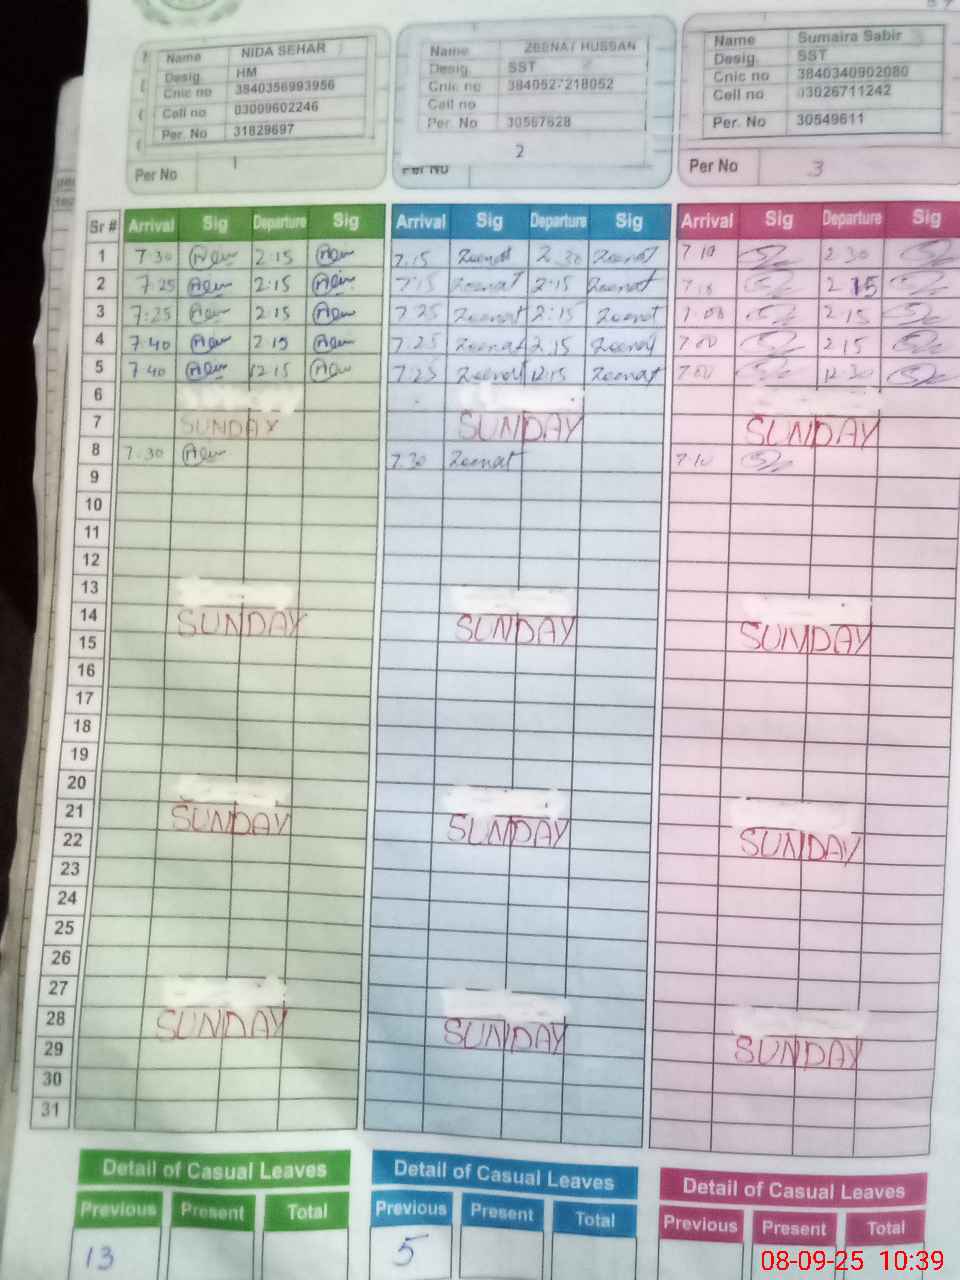 Name NIDA SEHAR
Desig HM
Cnic no 3840356993956
Cell no 03009602246
Per. No 31829697
Per No 1
Name HUSSAN
Desig. SST
Cnic no
Cell no
Per. No 30567628
2
Per No
Name Sumaira Sabir
Desig. SST
Cnic no 3840340902080
Cell no 03026711242
Per. No 30549611
Per No 3
Sr # Arrival Sig Departure Sig Arrival Sig Departure Sig Arrival Sig Departure Sig
1 7 30 2:15 7.15 Zeenat 2.30 Zeenat 7.10 2 30
2 7:25 2:15 7:15 Zeenat 2:15 Zeenat 2 15
3 7:25 2:15 7 25 Zeenat 2:15 Zeenat 2 15
4 7:40 2:15 7.25 Zeenat 2.15 Zeenat 2 15
5 7:40 12:15 7:25 Zeenat 12:15 Zeenat 12:30
6
7 SUNDAY SUNDAY SUNDAY
8 7:30 7.30 Zeenat 7.10
9
10
11
12
13
14 SUNDAY SUNDAY SUNDAY
15
16
17
18
19
20
21 SUNDAY SUNDAY SUNDAY
22
23
24
25
26
27
28 SUNDAY SUNDAY SUNDAY
29
30
31
Detail of Casual Leaves Detail of Casual Leaves Detail of Casual Leaves
Previous Present Total Previous Present Total Previous Present Total
13 5
08-09-25 10:39